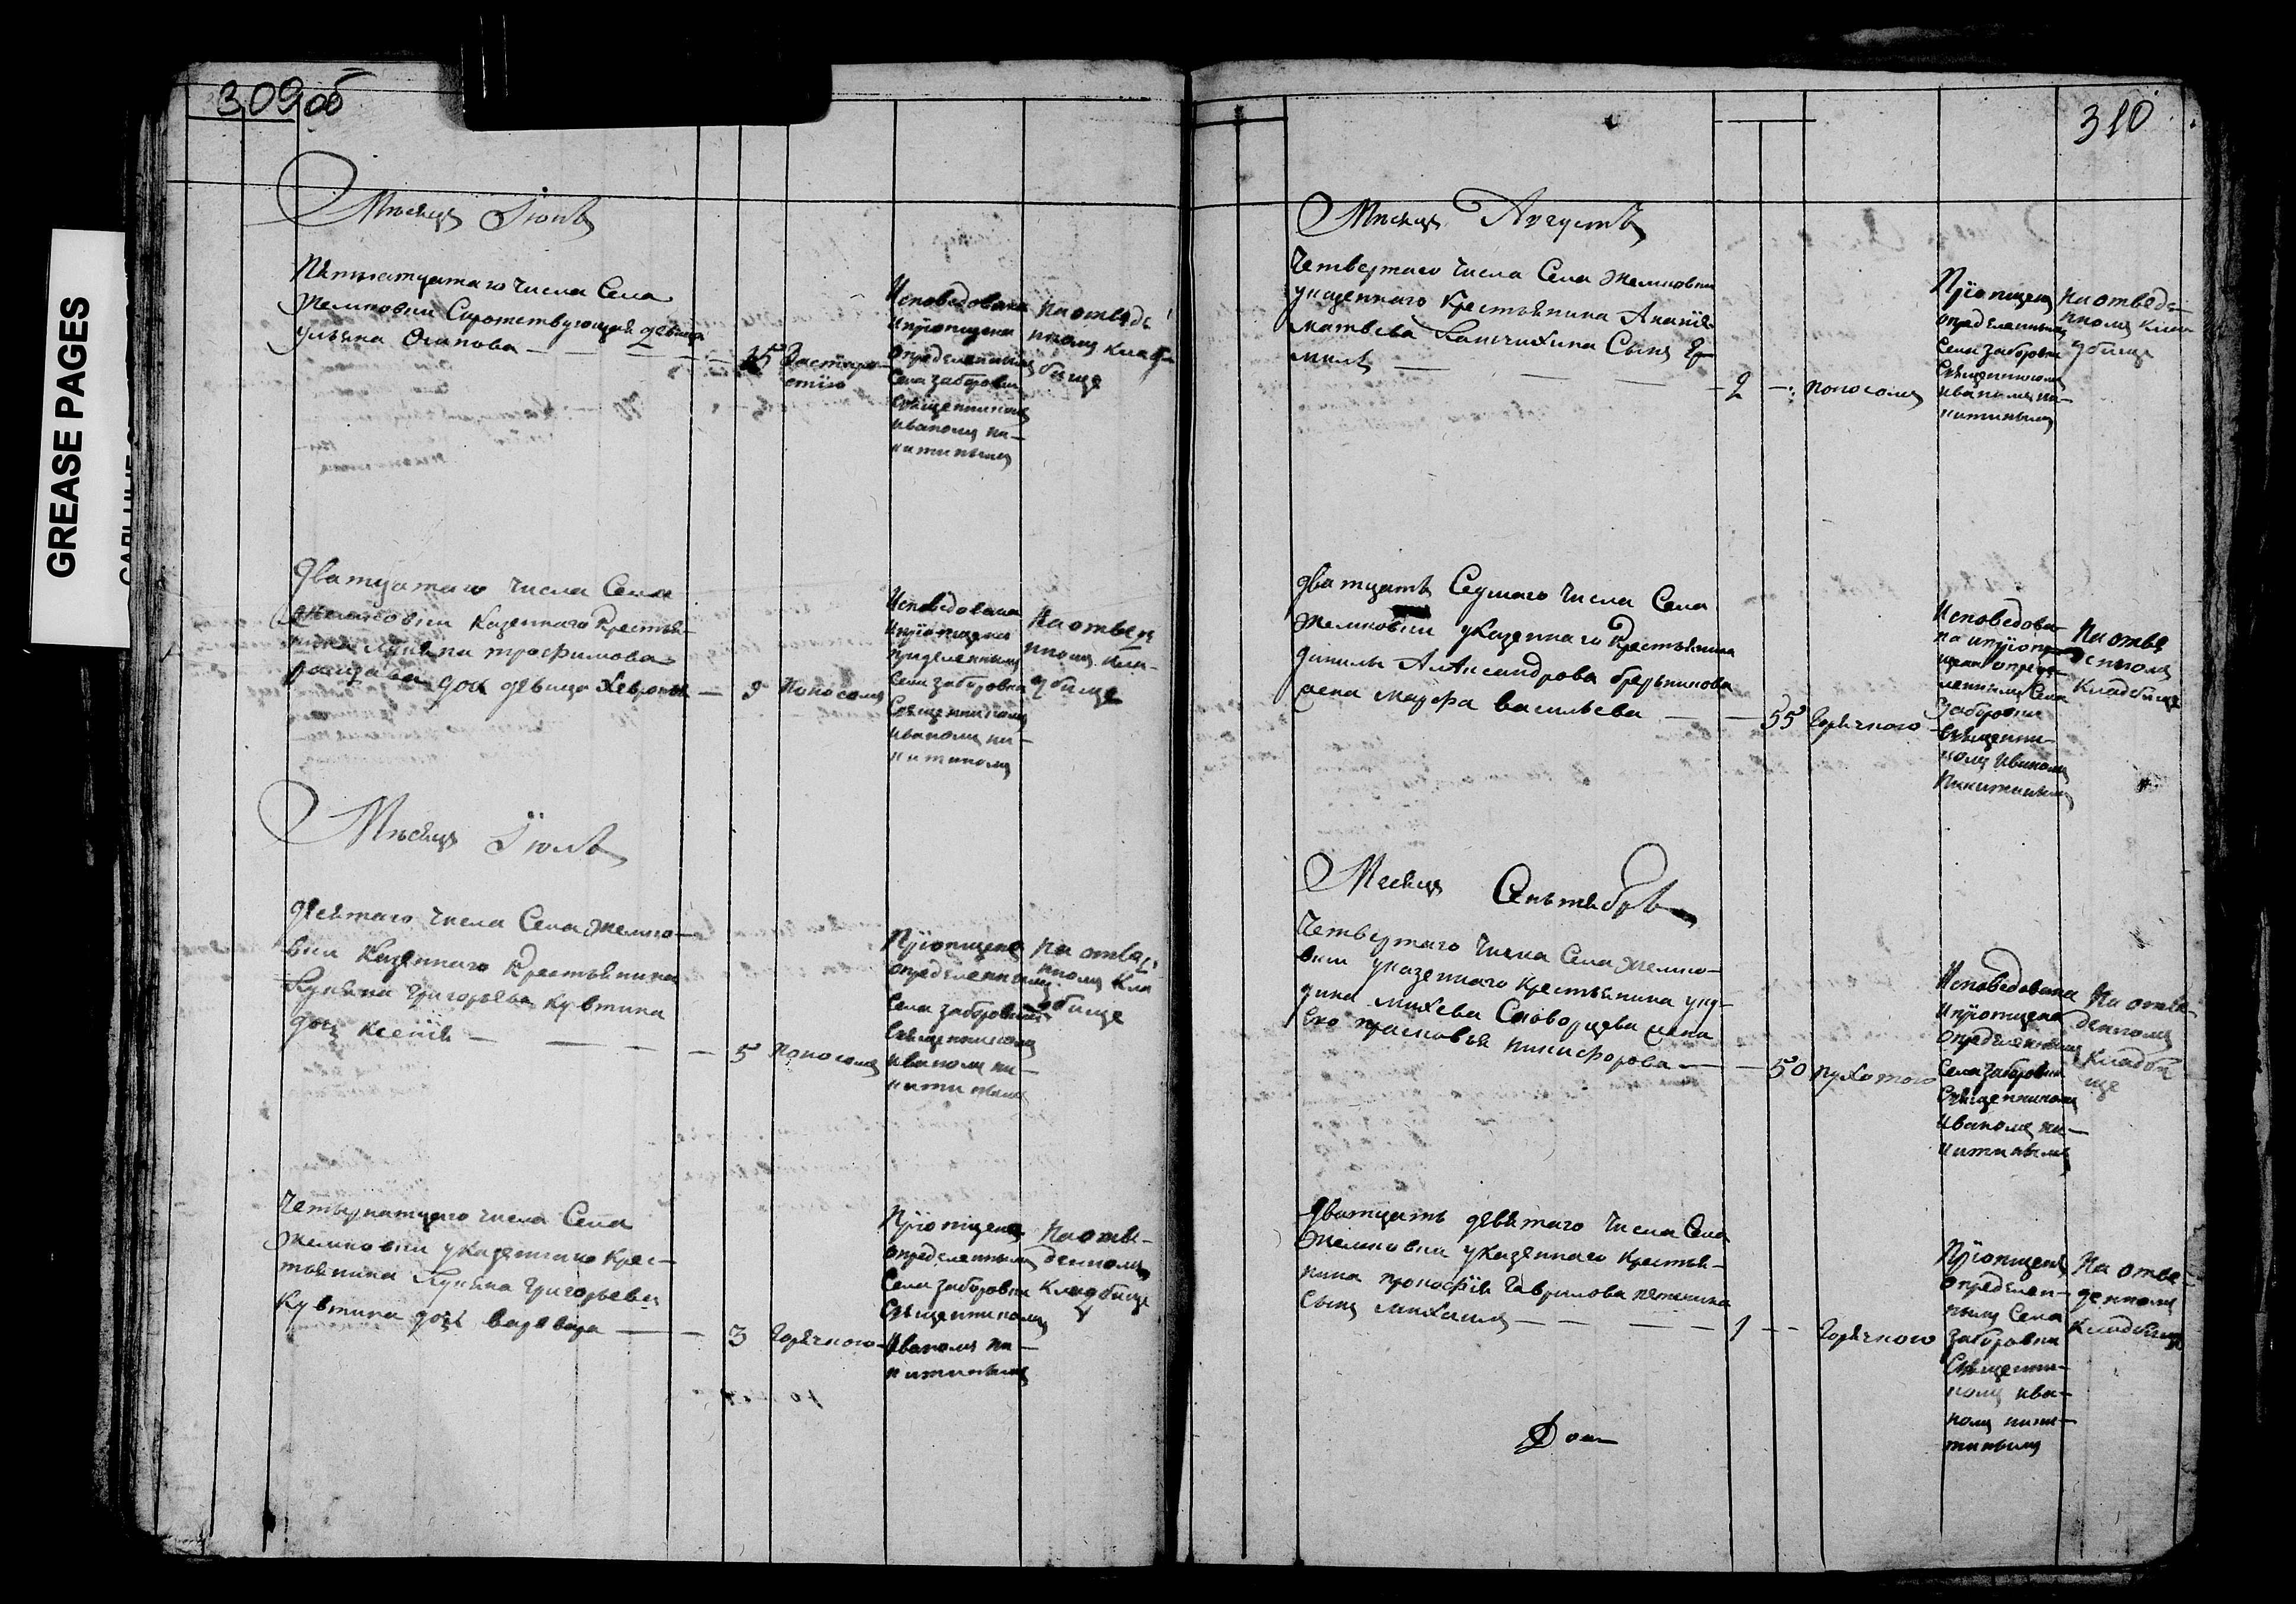 309 об
Месяцъ Іюнь
Пятнатцатаго числа Села
Жемковки Сиротствующая девица
Ульяна Осипова — 15
Исповедована
и приопщена
определеннымъ
Села заборовки
Священникомъ
иваномъ ни-
китинымъ
На отведе
нномъ клад-
бище
Дватцатаго числа Села
Жемковки Казеннаго Крестья-
нина Лукьяна трофимова
дочь девица Хевронья — 9 Поносомъ
Исповедована
и приопщена
определеннымъ
Села заборовки
Священникомъ
иваномъ ни-
китинымъ
На отведе
нномъ кла-
дбище
Месяцъ Іюль
девятаго числа Села Жемко-
вки Казеннаго Крестьянина
Лукьяна Григорьева Кувтина
дочь Ксенія — 5 Поносомъ
Приопщена
определеннымъ
Села заборовки
Священникомъ
иваномъ ни-
китинымъ
На отведе
нномъ кла
дбище
Четырнатцатаго числа Села
Жемковки указеннаго крес-
тьянина Лукьяна Григорьева
Кувтина дочь варвара — 3 Горячкою
Приопщена
определеннымъ
Села заборовки
Священникомъ
Иваномъ ни-
китинымъ
На отве-
денномъ
Кладбище
310
Месяцъ Августъ
Четвертаго числа Села Жемковки
указеннаго Крестьянина Ананія
матвеева Сынъ Ер-
милъ — 2 — поносомъ
Приопщенъ
определеннымъ
Села заборовки
Священникомъ
иваномъ ни-
китинымъ
На отведе-
нномъ кла-
дбище
дватцать Седмаго числа Села
Жемковки указеннаго Крестьянина
данилы Александрова
жена марфа васильева — 55 Горячкою
Исповедова-
на и приоп-
щена опреде-
леннымъ Села
Заборовки
Священни-
комъ Иваномъ
Никитинымъ
На отве
денномъ
Кладбище
Месяцъ Сентябрь
Четвертаго числа Села Жемко-
вки указеннаго Крестьянина
михеева Сковорцева жена
Ево прасковья никифорова — 50
Исповедована
и приопщена
определеннымъ
Села заборовки
Священникомъ
Иваномъ ни-
китинымъ
На отве-
денномъ
Кладби
ще
Дватцать девятаго числа Села
Жемковки указеннаго крестья-
нина прокофія Гаврилова
Сынъ михаилъ — 1 — Горячкою
Приопщенъ
определен-
нымъ Села
заборовки
Священни-
комъ ива-
номъ ники-
тинымъ
На отве-
денномъ
Кладбище
GREASE PAGES